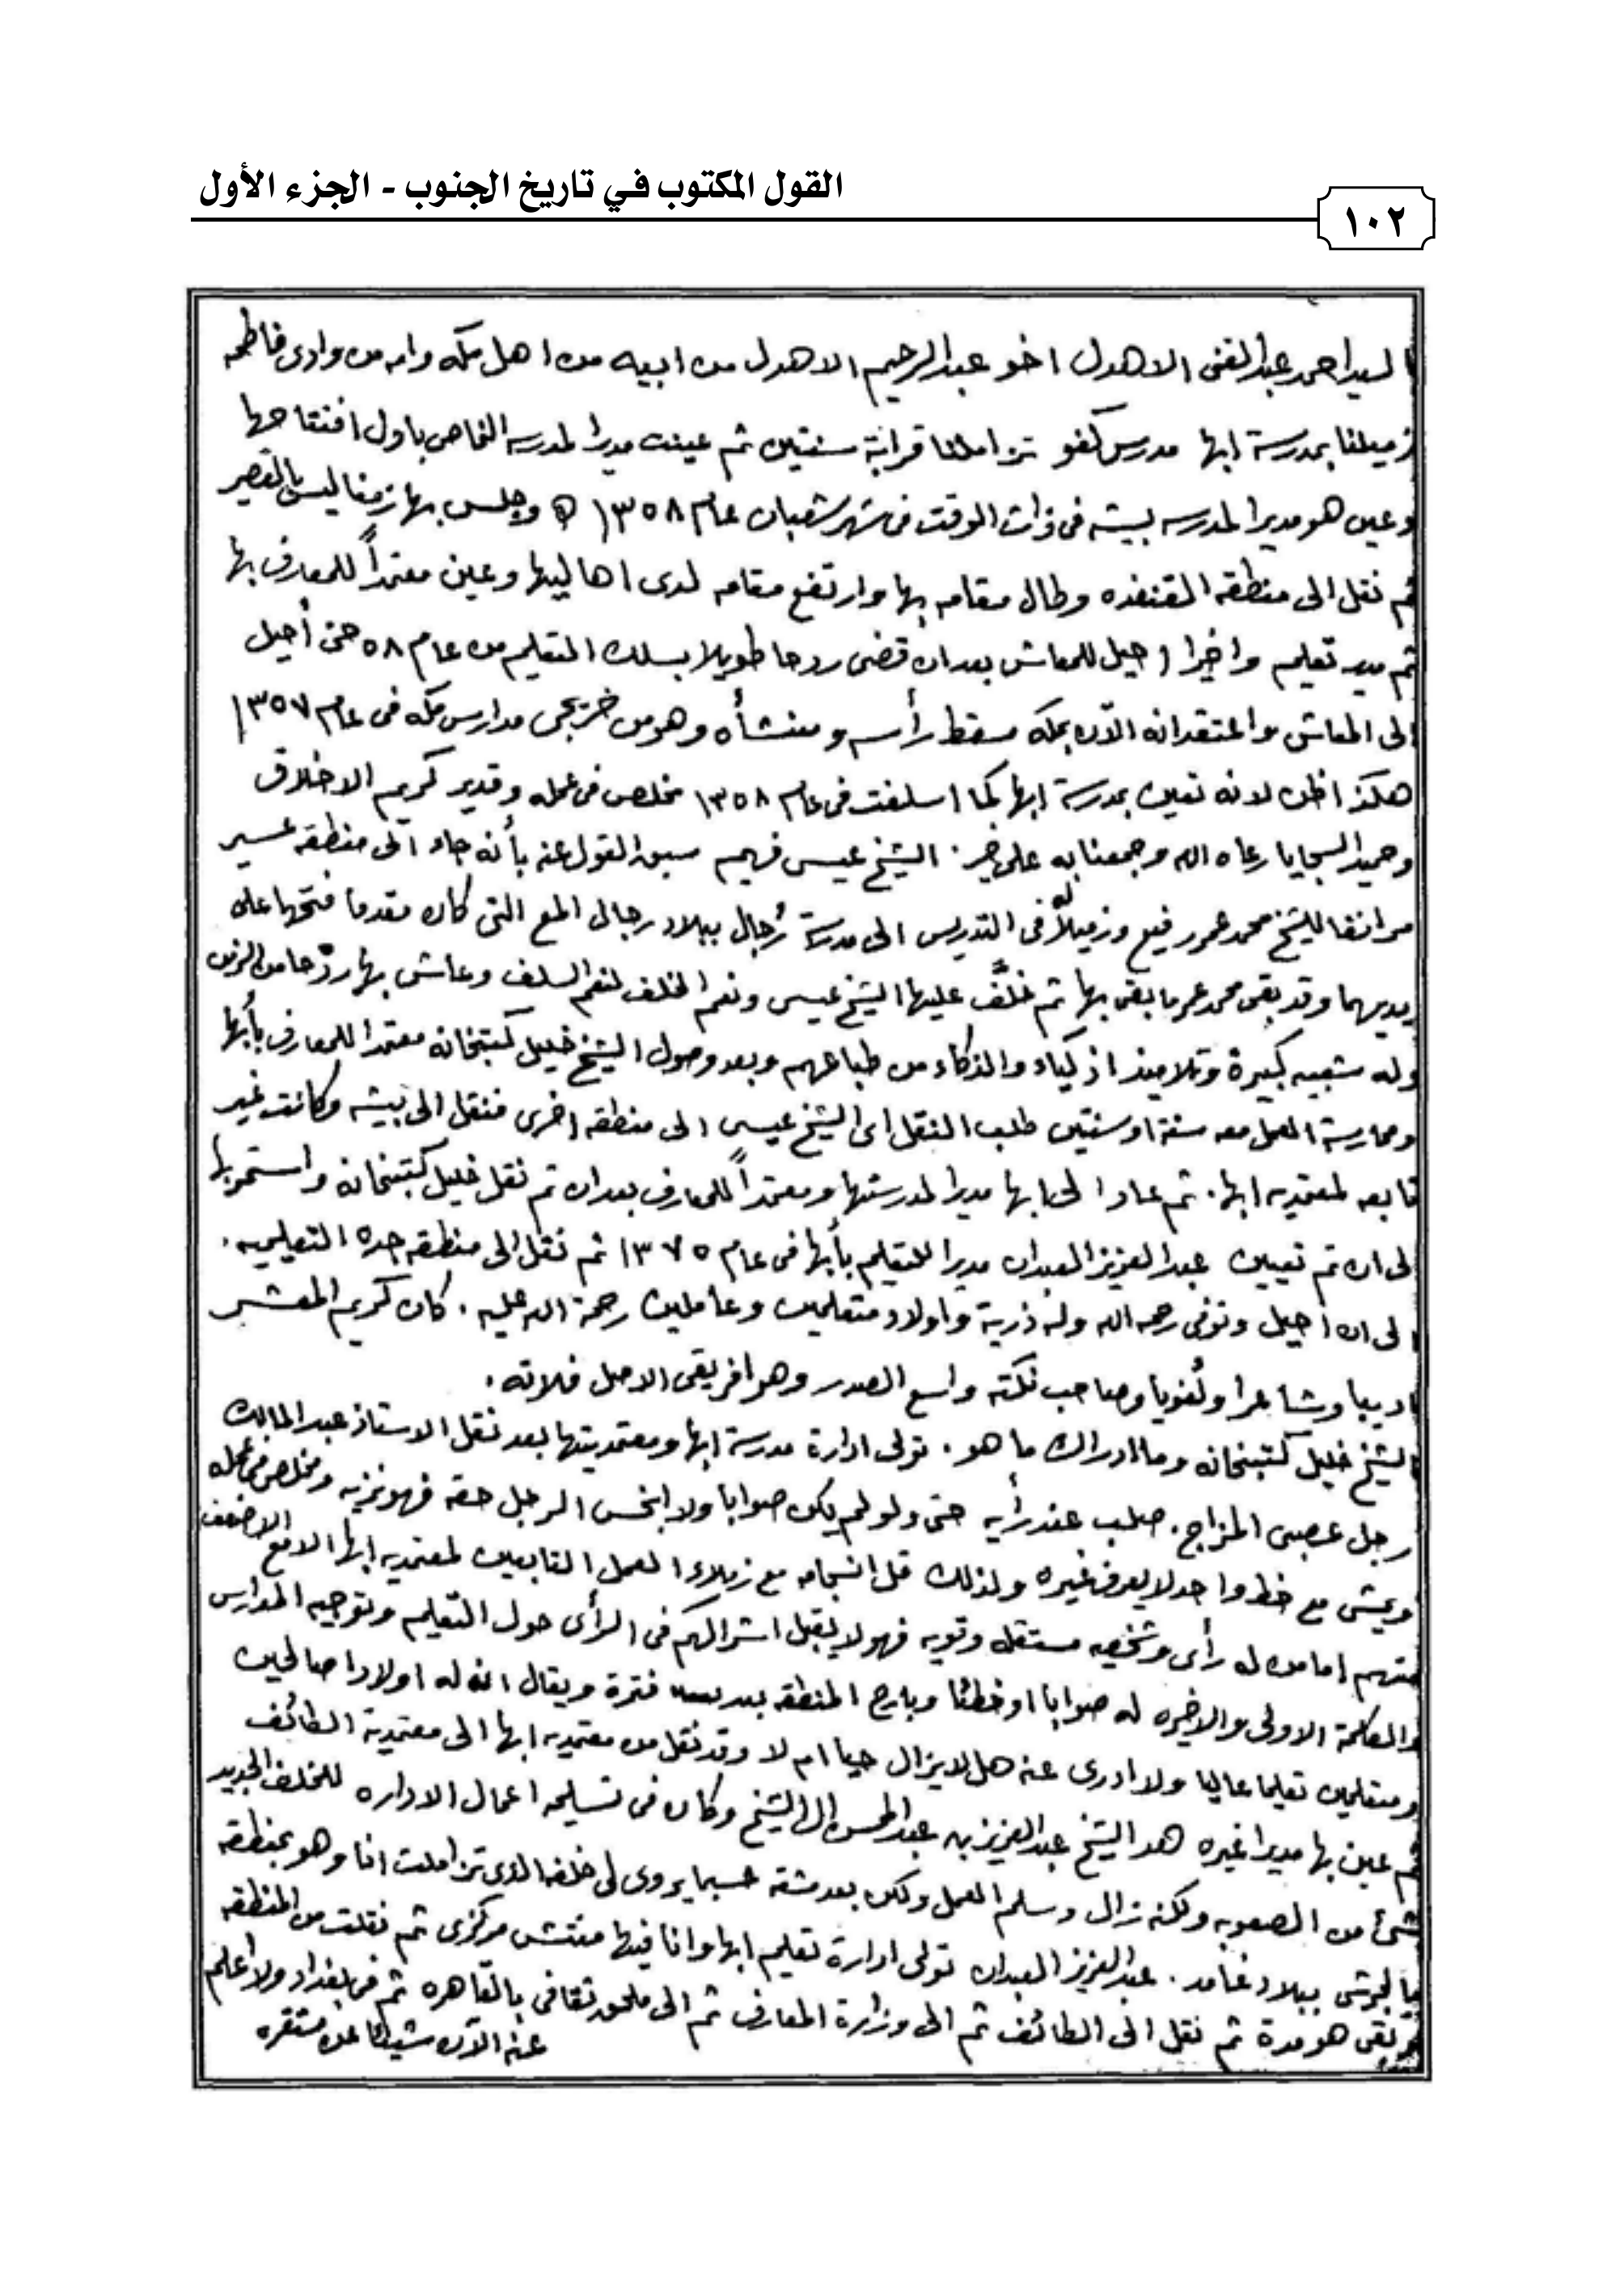 القول المكتوب في تاريخ الجنوب - الجزء الأول
١٠٢
السيد احمد عبدالغنى الاهدل اخو عبدالرحيم الاهدل من ابيه من اهل مكه وامه من وادى فاطمه
زميلنا بمدرسة ابها مدرس كفو تزاملنا قرابة سنتين ثم عينت مديرا لمدرسه النماص باول افتتاحها
وعين هو مديرا لمدرسه بيشه فى ذات الوقت فى شهر شعبان عام ١٣٥٨ ه وجلس بها زمنا ليس بالقصير
ثم نقل الى منطقه القنفذه وطال مقامه بها وارتفع مقامه لدى اهاليها وعين معتمداً للمعارف بها
ثم مدير تعليم واخيرا احيل للمعاش بعد ان قضى ردحا طويلا بسلك التعليم من عام ٥٨ حتى أحيل
الى المعاش والمعتقد انه الآن بمكه مسقط رأسه ومنشأه وهو من خريجى مدارس مكه فى عام ١٣٥٧
هكذا اظن لانه تعين بمدرسة ابها كما اسلفت فى عام ١٣٥٨ مخلص فى عمله وقدير كريم الاخلاق
وحميد السجايا رعاه الله وجمعنا به على خير. الشيخ عيسى فهيم سبق القول عنه بأنه جاء الى منطقه عسير
مرافقا للشيخ محمد عمر رفيع وزميلاً له فى التدريس الى مدرسة رُجال ببلاد رجالى المع التى كان مقدما فتحها على
يديهما وقد بقى محمد عمر ما بقى بها ثم خلَّف عليها الشيخ عيسى ونعم الخلف لنعم السلف وعاش بها ردْحا من الزمن
وله شعبيه كبيرة وتلاميذ اذكياء والذكاء من طباعهم وبعد وصول الشيخ خليل كتبخانه معتمدا للمعارف بأبها
وممارسة العمل معه سنة او سنتين طلب النقل اى الشيخ عيسى الى منطقه اخرى فنقل الى بيشه وكانت غير
تابعه لمعتمديه ابها. ثم عاد الى ابها مديرا لمدرستها ومعتمداً للمعارف بعد ان تم نقل خليل كتبخانه واستمر بها
الى ان تم تعيين عبدالعزيز العبدان مديرا للتعليم بأبها فى عام ١٣٧٥ ثم نقل الى منطقه جده التعليميه.
الى ان احيل وتوفى رحمه الله وله ذرية واولاد متعلمين وعاملين رحمة الله عليه. كان كريم المعشر
اديبا وشاعرا ولُغويا وصاحب نكته واسع الصدر وهو افريقى الاصل فلاته.
الشيخ خليل كتبخانه وما ادراك ما هو. تولى ادارة مدرسة ابها ومعتمديتها بعد نقل الاستاذ عبدالمالك
رجل عصبى المزاج. صلب عند رأيه حتى ولو لم يكن صوابا ولا ابخس الرجل حقه فهو نزيه ومخلص فى عمله
ويمشى مع خط واحد لا يعرف غيره ولذلك قل انسجامه مع زملاء العمل التابعين لمعتمديه ابها الا مع الاضعف
منهم اما من له رأى وشخصيه مستقله وقويه فهو لا يقبل اشراكهم فى الرأى حول التعليم وتوجيه المدارس
والكلمة الاولى والاخيره له صوابا او خطئا وبارح المنطقه بعد فترة ويقال انه له اولادا صالحين
ومتعلمين تعليما عاليا ولا ادرى عنه هل لا يزال حيا ام لا وقد نقل من معتمديه ابها الى معتمدية الطائف
ثم عين بها مديرا غيره هو الشيخ عبدالعزيز بن عبدالمحسن ال الشيخ وكان فى تسليمه اعمال الاداره للخلف الجديد
شئ من الصعوبه ولكنه زال وسلم العمل ولكن بعد مشقه حسبما يروى لى خلفه الذى تزاملت انا وهو بمنطقه
بالجرشى ببلاد غامد. عبدالعزيز العبدان تولى ادارة تعليم ابها وانا فيها مفتش مركزى ثم نقلت من المنطقه
وبقى هو مدة ثم نقل الى الطائف ثم الى وزارة المعارف ثم الى ملحق ثقافى بالقاهره ثم فى بغداد ولا اعلم
عنه الآن شيئا عن مستقره